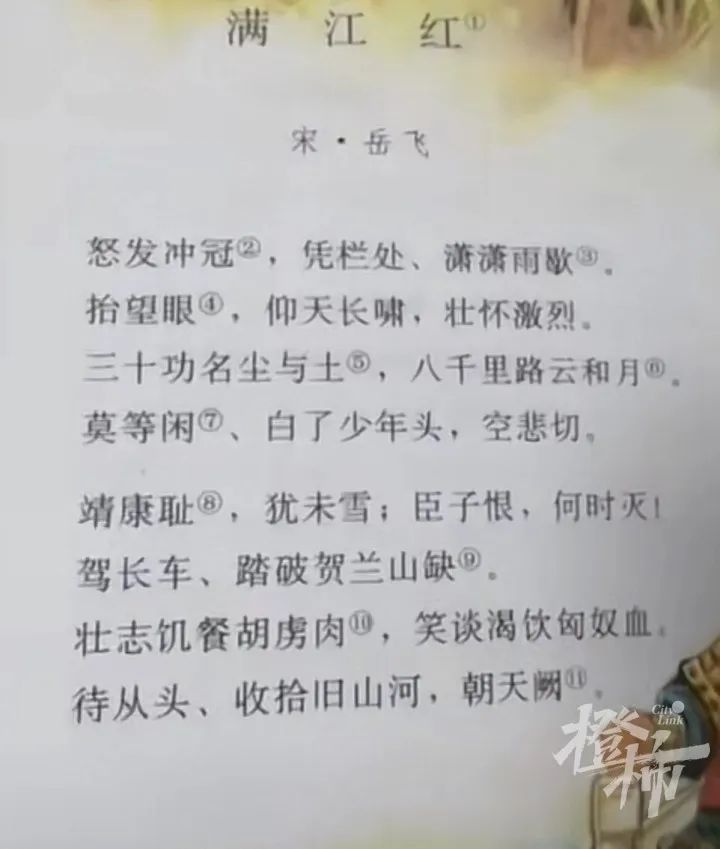 满江红①
宋·岳飞
怒发冲冠②，凭栏处、潇潇雨歇③。
抬望眼④，仰天长啸，壮怀激烈。
三十功名尘与土⑤，八千里路云和月⑥。
莫等闲⑦、白了少年头，空悲切。
靖康耻⑧，犹未雪；臣子恨，何时灭！
驾长车、踏破贺兰山缺⑨。
壮志饥餐胡虏肉⑩，笑谈渴饮匈奴血。
待从头、收拾旧山河，朝天阙⑪。
City
Link
橙柿